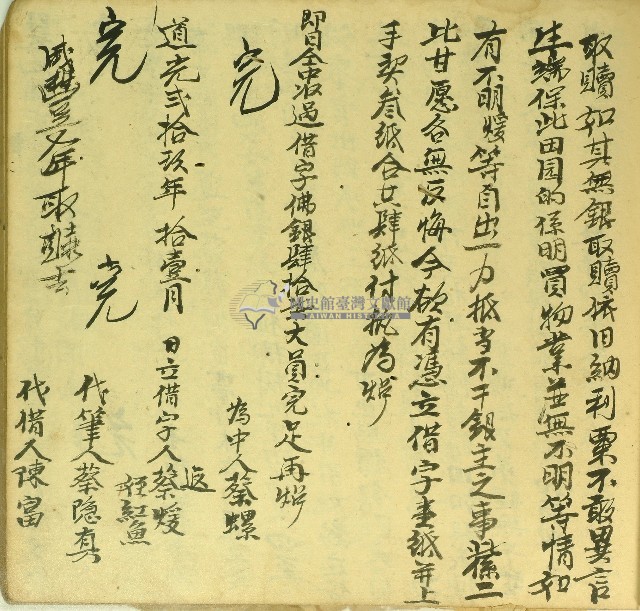 取贖如其無銀取贖依旧納利粟不敢異言
生端保此田园的係明買物業並無不明等情如
有不明煖等自出一力抵当不干銀主之事業二
比甘愿各無反悔今欲有憑立借字壹紙并上
手契叁紙合共肆紙付執為炤
即日仝中收過借字佛銀肆拾大員完足再炤
為中人蔡螺
完
道光弍拾玖年拾壹月 日立借字人蔡煖
返
紅魚
代筆人蔡隐真
代借人陳富
完
完
咸豐年取贖去
國史館臺灣文獻館
TAIWAN HISTORICA